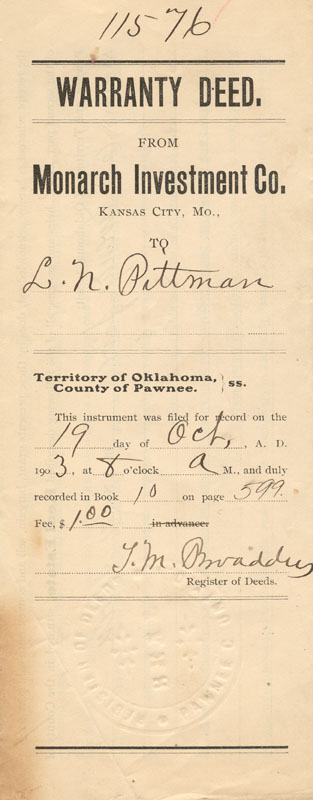 11576
WARRANTY DEED.
FROM
Monarch Investment Co.
KANSAS CITY, MO.,
TO
L. N. Pittman
Territory of Oklahoma,
County of Pawnee. } ss.
This instrument was filed for record on the
19 day of Oct, A. D.
1903, at 8 o'clock a M., and duly
recorded in Book 10 on page 599.
Fee, $ 1.00 in advance.
T. M. Broaddus
Register of Deeds.
REGISTER OF DEEDS
PAWNEE